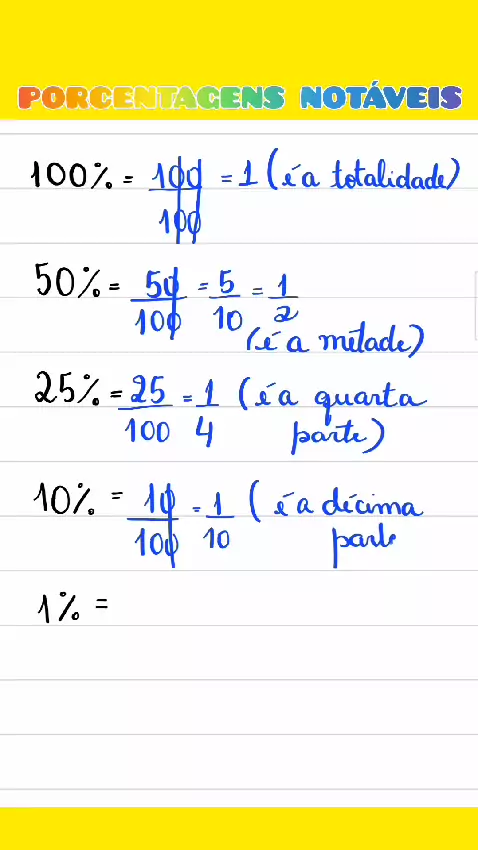 PORCENTAGENS NOTÁVEIS
100% = 100/100 = 1 (é a totalidade)
50% = 50/100 = 5/10 = 1/2
(é a metade)
25% = 25/100 = 1/4 (é a quarta
parte)
10% = 10/100 = 1/10 (é a décima
parte
1% =